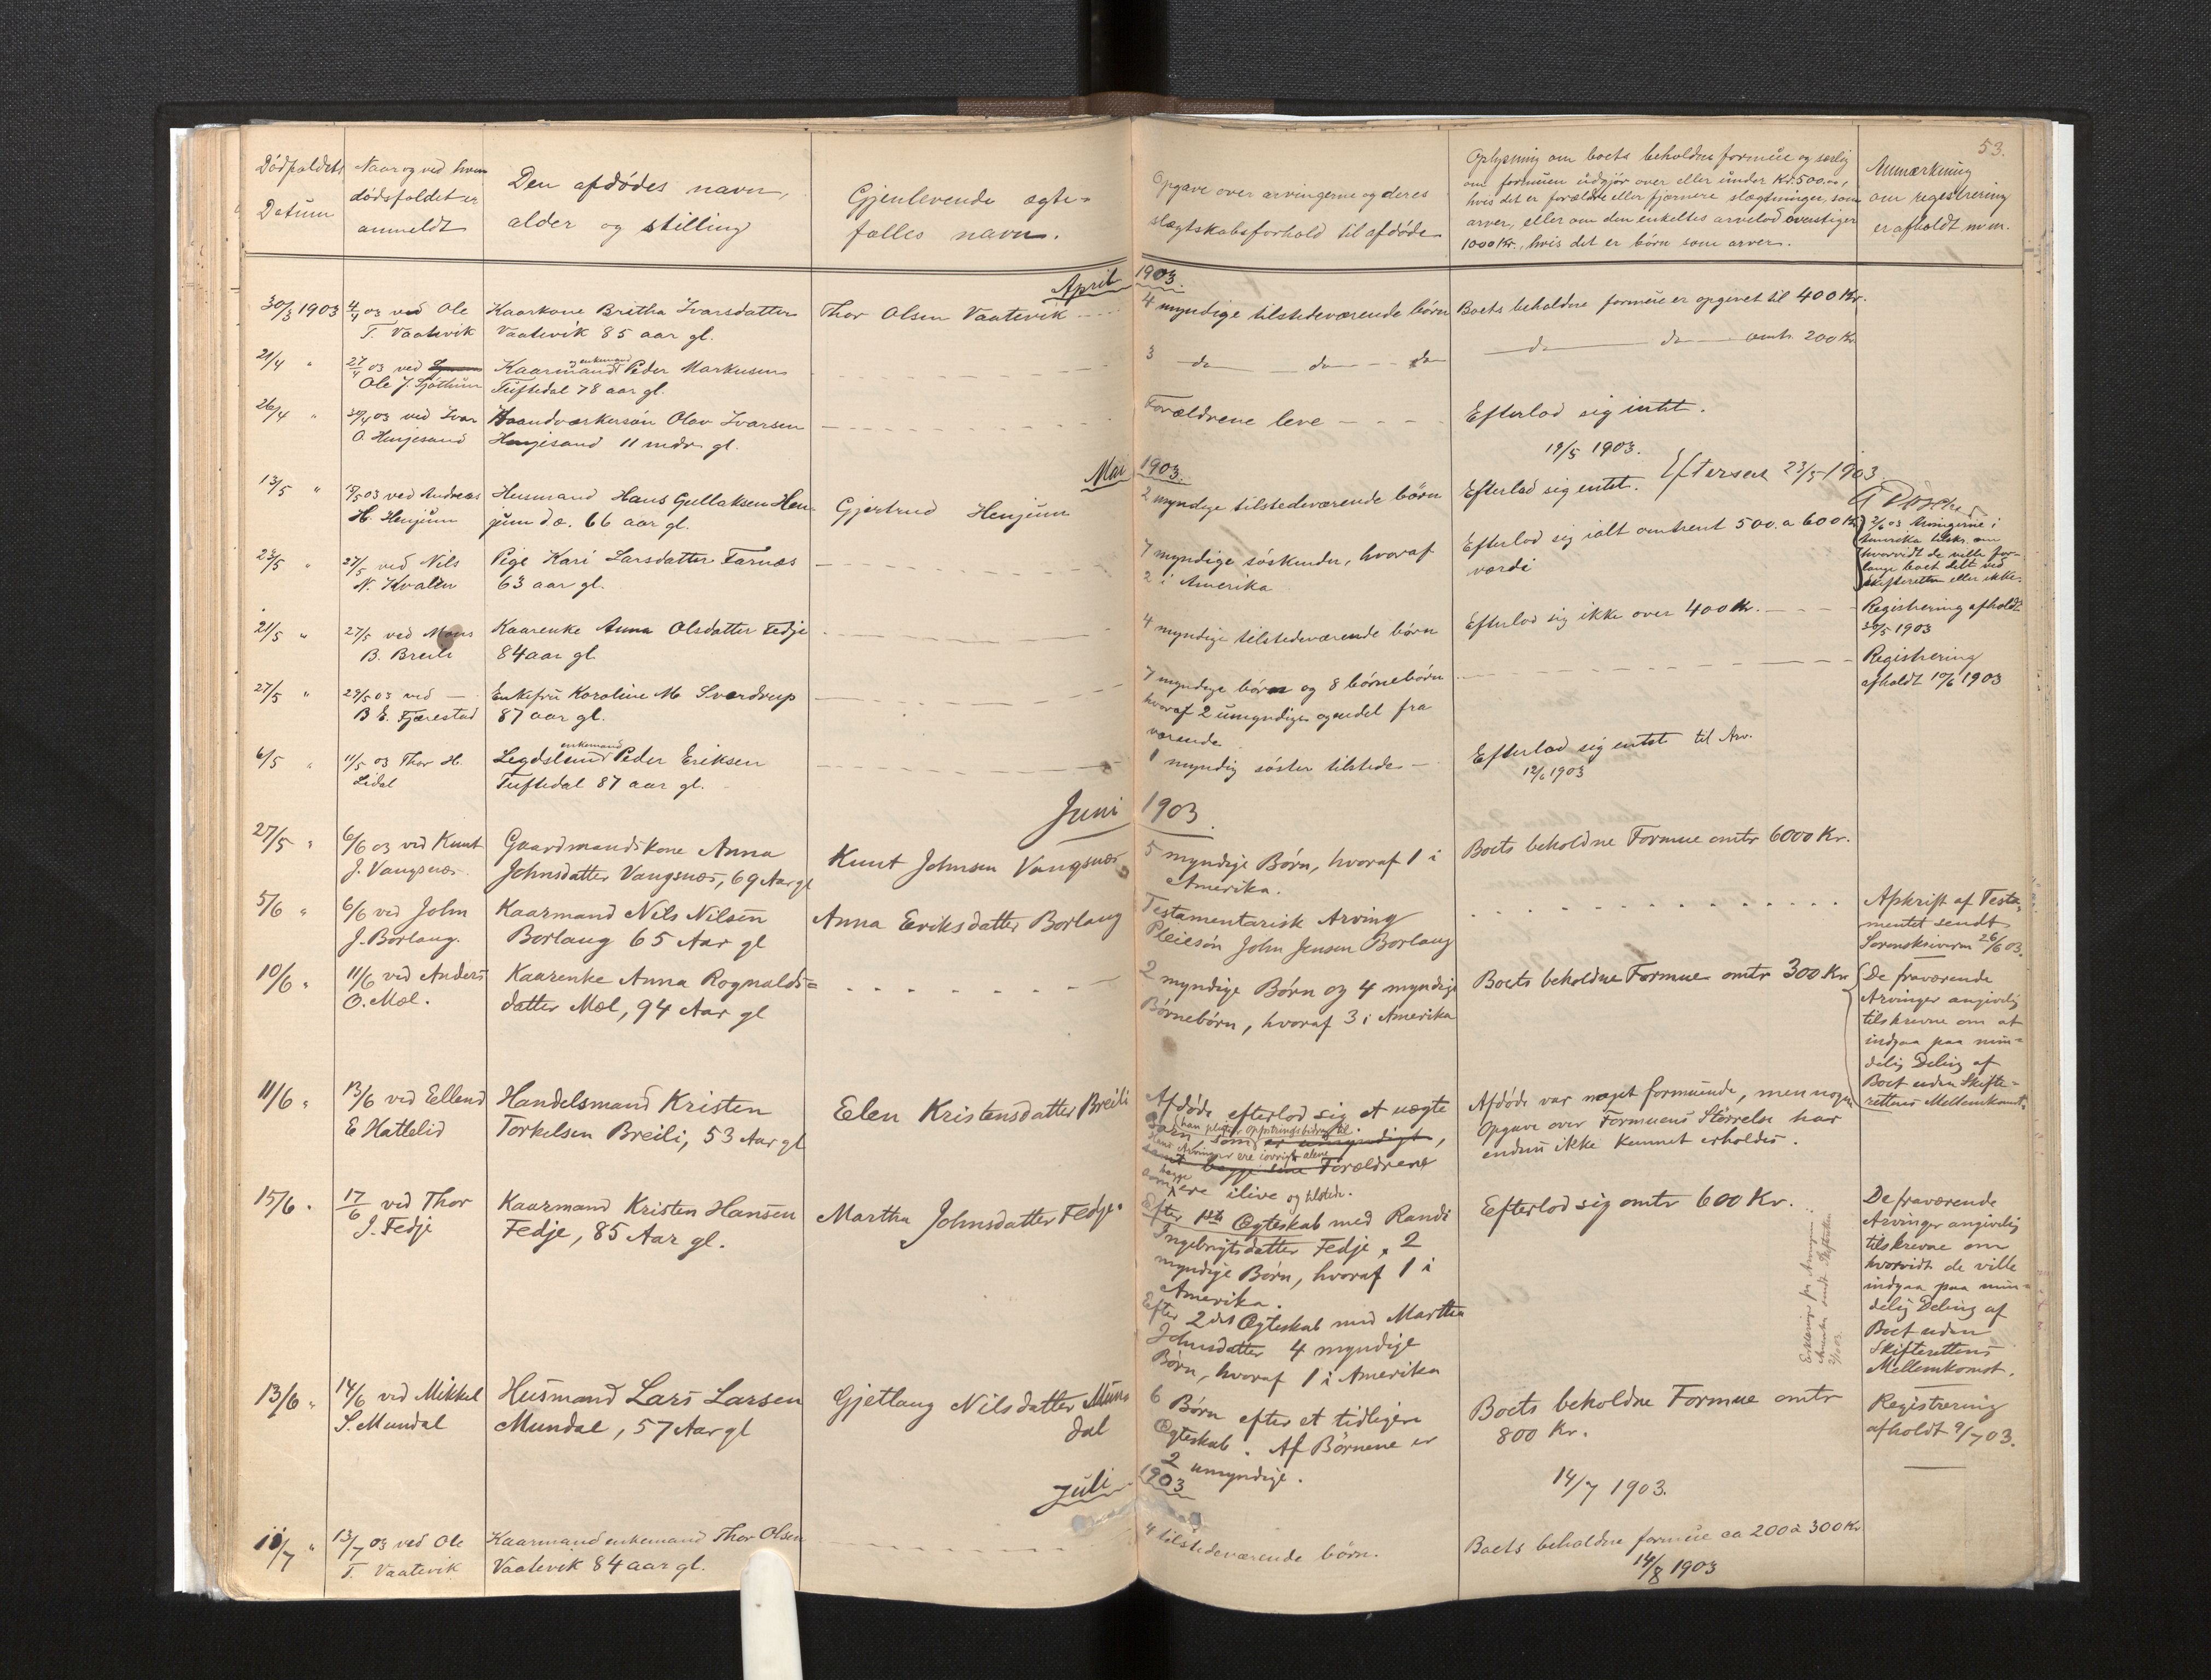 53.
Dödsfaldets
Datum
Naar og ved hvem
dödsfaldet er
anmeldt
Den afdödes navn,
alder og stilling
Gjenlevende ægte=
fælles navn.
Opgave over arvingerne og deres
slægtskabsforhold til afdöde
Oplysning om boets beholdne formue og særlig
om formuen udgjör over eller under Kr. 500.00,
hvis det er forældre eller fjernere slægtninger, som
arver, eller om den enkeltes arvelod overstiger
1000 Kr., hvis det er börn som arver.
Anmærkning
om registrering
er afholdt m.m.
April 1903.
30/3 1903
4/4 03 ved Ole
T. Vaatevik
Kaarkone Britha Ivarsdatter
Vaatevik 85 aar gl.
Thor Olsen Vaatevik
4 myndige tilstedeværende börn
Boets beholdne formue er opgivet til 400 Kr.
21/4 "
27/4 03 ved
Ole J. Tjöthum
og enkemand
Kaarmand Peder Markusen
Tuftedal 78 aar gl.
3 do do do
do do omtr. 200 Kr
26/4 "
30/4 03 ved Ivar
O. Henjesand
Haandværkersön Olav Ivarsen
Henjesand 11 mdr gl.
Forældrene leve
Efterlod sig intet.
19/5 1903.
Mai 1903.
Eftersees 23/5 1903
13/5 "
15/5 03 ved Andreas
H. Henjum
Husmand Hans Gullaksen Hen-
jum d.æ. 66 aar gl.
Gjertrud Henjum
2 myndige tilstedeværende börn
Efterlod sig intet.
23/5 "
27/5 ved Nils
N. Kvalen
Pige Kari Larsdatter Farnæs
63 aar gl.
7 myndige söskende, hvoraf
2 i Amerika
Efterlod sig ialt omtrent 500. a 600 Kr
værdi
2/6 03 Arvingerne i
Amerika tilskr. om
hvorvidt de ville for-
lange boet delt ved
skifteretten eller ikke.
21/5 "
27/5 ved Mons
B. Breili
Kaarenke Anna Olsdatter Fedje
84 aar gl.
4 myndige tilstedeværende börn
Efterlod sig ikke over 400 Kr.
Registrering afholdt
30/5 1903
27/5 "
29/5 03 ved
B. E. Fjærestad
Enkefru Karoline M. Sverdrup
87 aar gl.
7 myndige börn og 8 börnebörn
hvoraf 2 umyndige og endel fra
værende
Registrering
afholdt 10/6 1903
6/5 "
11/5 03 Thor H.
Lidal
enkemand
Legdslem Peder Eriksen
Tuftedal 87 aar gl.
1 myndig söster tilstede
Efterlod sig intet til Arv.
12/6 1903
Juni 1903.
27/5 "
6/6 03 ved Knut
J. Vangsnæs
Gaardmandskone Anna
Johnsdatter Vangsnæs, 69 Aar gl
Knut Johnsen Vangsnæs
5 myndige Börn, hvoraf 1 i
Amerika.
Boets beholdne Formue omtr 6000 Kr.
5/6 "
6/6 ved John
J. Borlaug.
Kaarmand Nils Nilsen
Borlaug 65 Aar gl
Anna Eriksdatter Borlaug
Testamentarisk Arving
Pleiesön John Jensen Borlaug
Afskrift af Testa-
mentet sendt
Sorenskiveren 26/6 03.
10/6 "
11/6 ved Anders
O. Mæl.
Kaarenke Anna Rognalds=
datter Mæl, 94 Aar gl
2 myndige Börn og 4 myndige
Börnebörn, hvoraf 3 i Amerika
Boets beholdne Formue omtr 300 Kr
De fraværende
Arvinger angivelig
tilskrevne om at
indgaa paa min=
delig Deling af
Boet uden Skifte=
rettens Mellemkomst.
11/6 "
13/6 ved Ellend
E Hattelid
Handelsmand Kristen
Torkelsen Breili, 53 Aar gl
Elen Kristensdatter Breili
Afdöde efterlod sig et uægte
Barn, som er umyndigt,
han pleier Oppfostringsbidrag til
Hans Arvinger ere iövrigt alene
samt begge sine Forældrene
som begge ere ilive og tilstede.
Afdöde var noget formuende, men nogen
Opgave over Formuens Störrelse har
endnu ikke kunnet erholdes.
15/6 "
17/6 ved Thor
J. Fedje
Kaarmand Kristen Hansen
Fedje, 85 Aar gl.
Martha Johnsdatter Fedje.
Efter 1ste Ægteskab med Randi
Ingebrigtsdatter Fedje, 2
myndige Börn, hvoraf 1 i
Amerika.
Efter 2det Ægteskab med Martha
Johnsdatter 4 myndige
Börn, hvoraf 1 i Amerika
Efterlod sig omtr 600 Kr.
Erklæringer fra Arvingerne i
Amerika sendt Skifteretten
De fraværende
Arvinger angivelig
tilskrevne om
hvorvidt de ville
indgaa paa min=
delig Deling af
Boet uden
Skifterettens
Mellemkomst.
13/6 "
14/6 ved Mikkel
S. Mundal
Husmand Lars Larsen
Mundal, 57 Aar gl
Gjetlaug Nilsdatter Mun
dal
6 Börn efter et tidligere
Ægteskab. Af Börnene er
2 umyndige.
Boets beholdne Formue omtr
800 Kr.
Registrering
afholdt 9/7 03.
14/7 1903.
Juli 1903
11/7 "
13/7 03 ved Ole
T. Vaatevik
Kaarmand enkemand Thor Olsen
Vaatevik 84 aar gl.
4 tilstedeværende börn.
Boets beholdne formue ca 200 à 300 Kr
14/8 1903